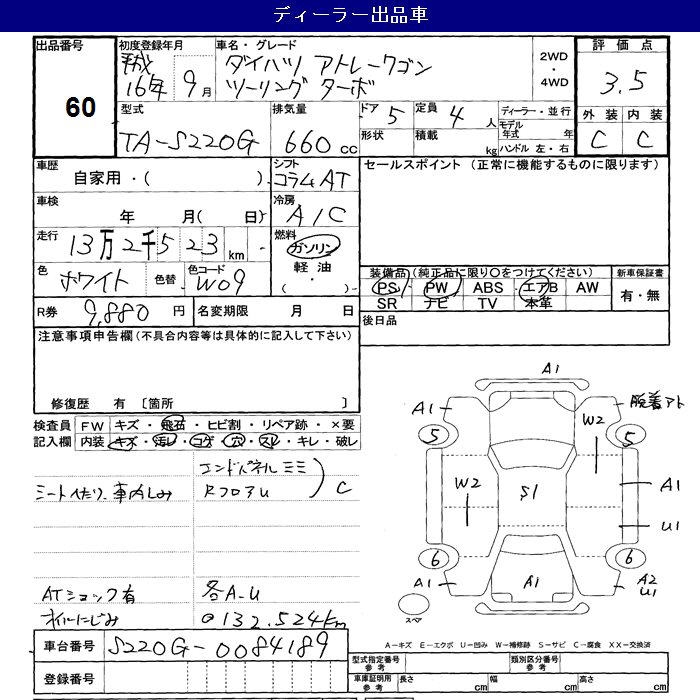 ディーラー出品車
出品番号 初度登録年月 車名・グレード 評価点
60
平成16年 9月
ダイハツ アトレーワゴン
ツーリング ターボ
2WD
・
4WD
3.5
型式 排気量 ドア 5 定員 4人 ディーラー・並行
TA-S220G 660cc
形状 積載 kg
モデル年式 年
ハンドル 左・右
外装 内装
C C
車歴 シフト セールスポイント (正常に機能するものに限ります)
自家用・( ) コラムAT
車検 冷房
年 月( 日) A/C
走行 燃料
13万2千523km ガソリン
軽油
・( )
色 色替 色コード
ホワイト W09
装備品(純正品に限り○をつけてください) 新車保証書
PS PW ABS エアB AW 有・無
SR ナビ TV 本革
R券 9,880円 名変期限 月 日
後日品
注意事項申告欄(不具合内容等は具体的に記入して下さい)
修復歴 有 〔箇所 〕
検査員記入欄
FW キズ・飛石・ヒビ割・リペア跡・×要
内装 キズ・汚レ・コゲ・穴・スレ・キレ・破レ
エンドパネルミミ
RフロアU
C
シートへたり、車内しみ
ATショック有 各A-U
オイルにじみ 132,524km
A1
A1
脱着アト
5
5
W2
W2
S1
A1
U1
6
6
A1
A1
A2
U1
スペア
A−キズ E−エクボ U−凹み W−補修跡 S−サビ C−腐食 XX−交換済
車台番号 S220G-0084189
登録番号
型式指定番号 参考 類別区分番号 参考
車庫証明用 参考 長さ cm 幅 cm 高さ cm